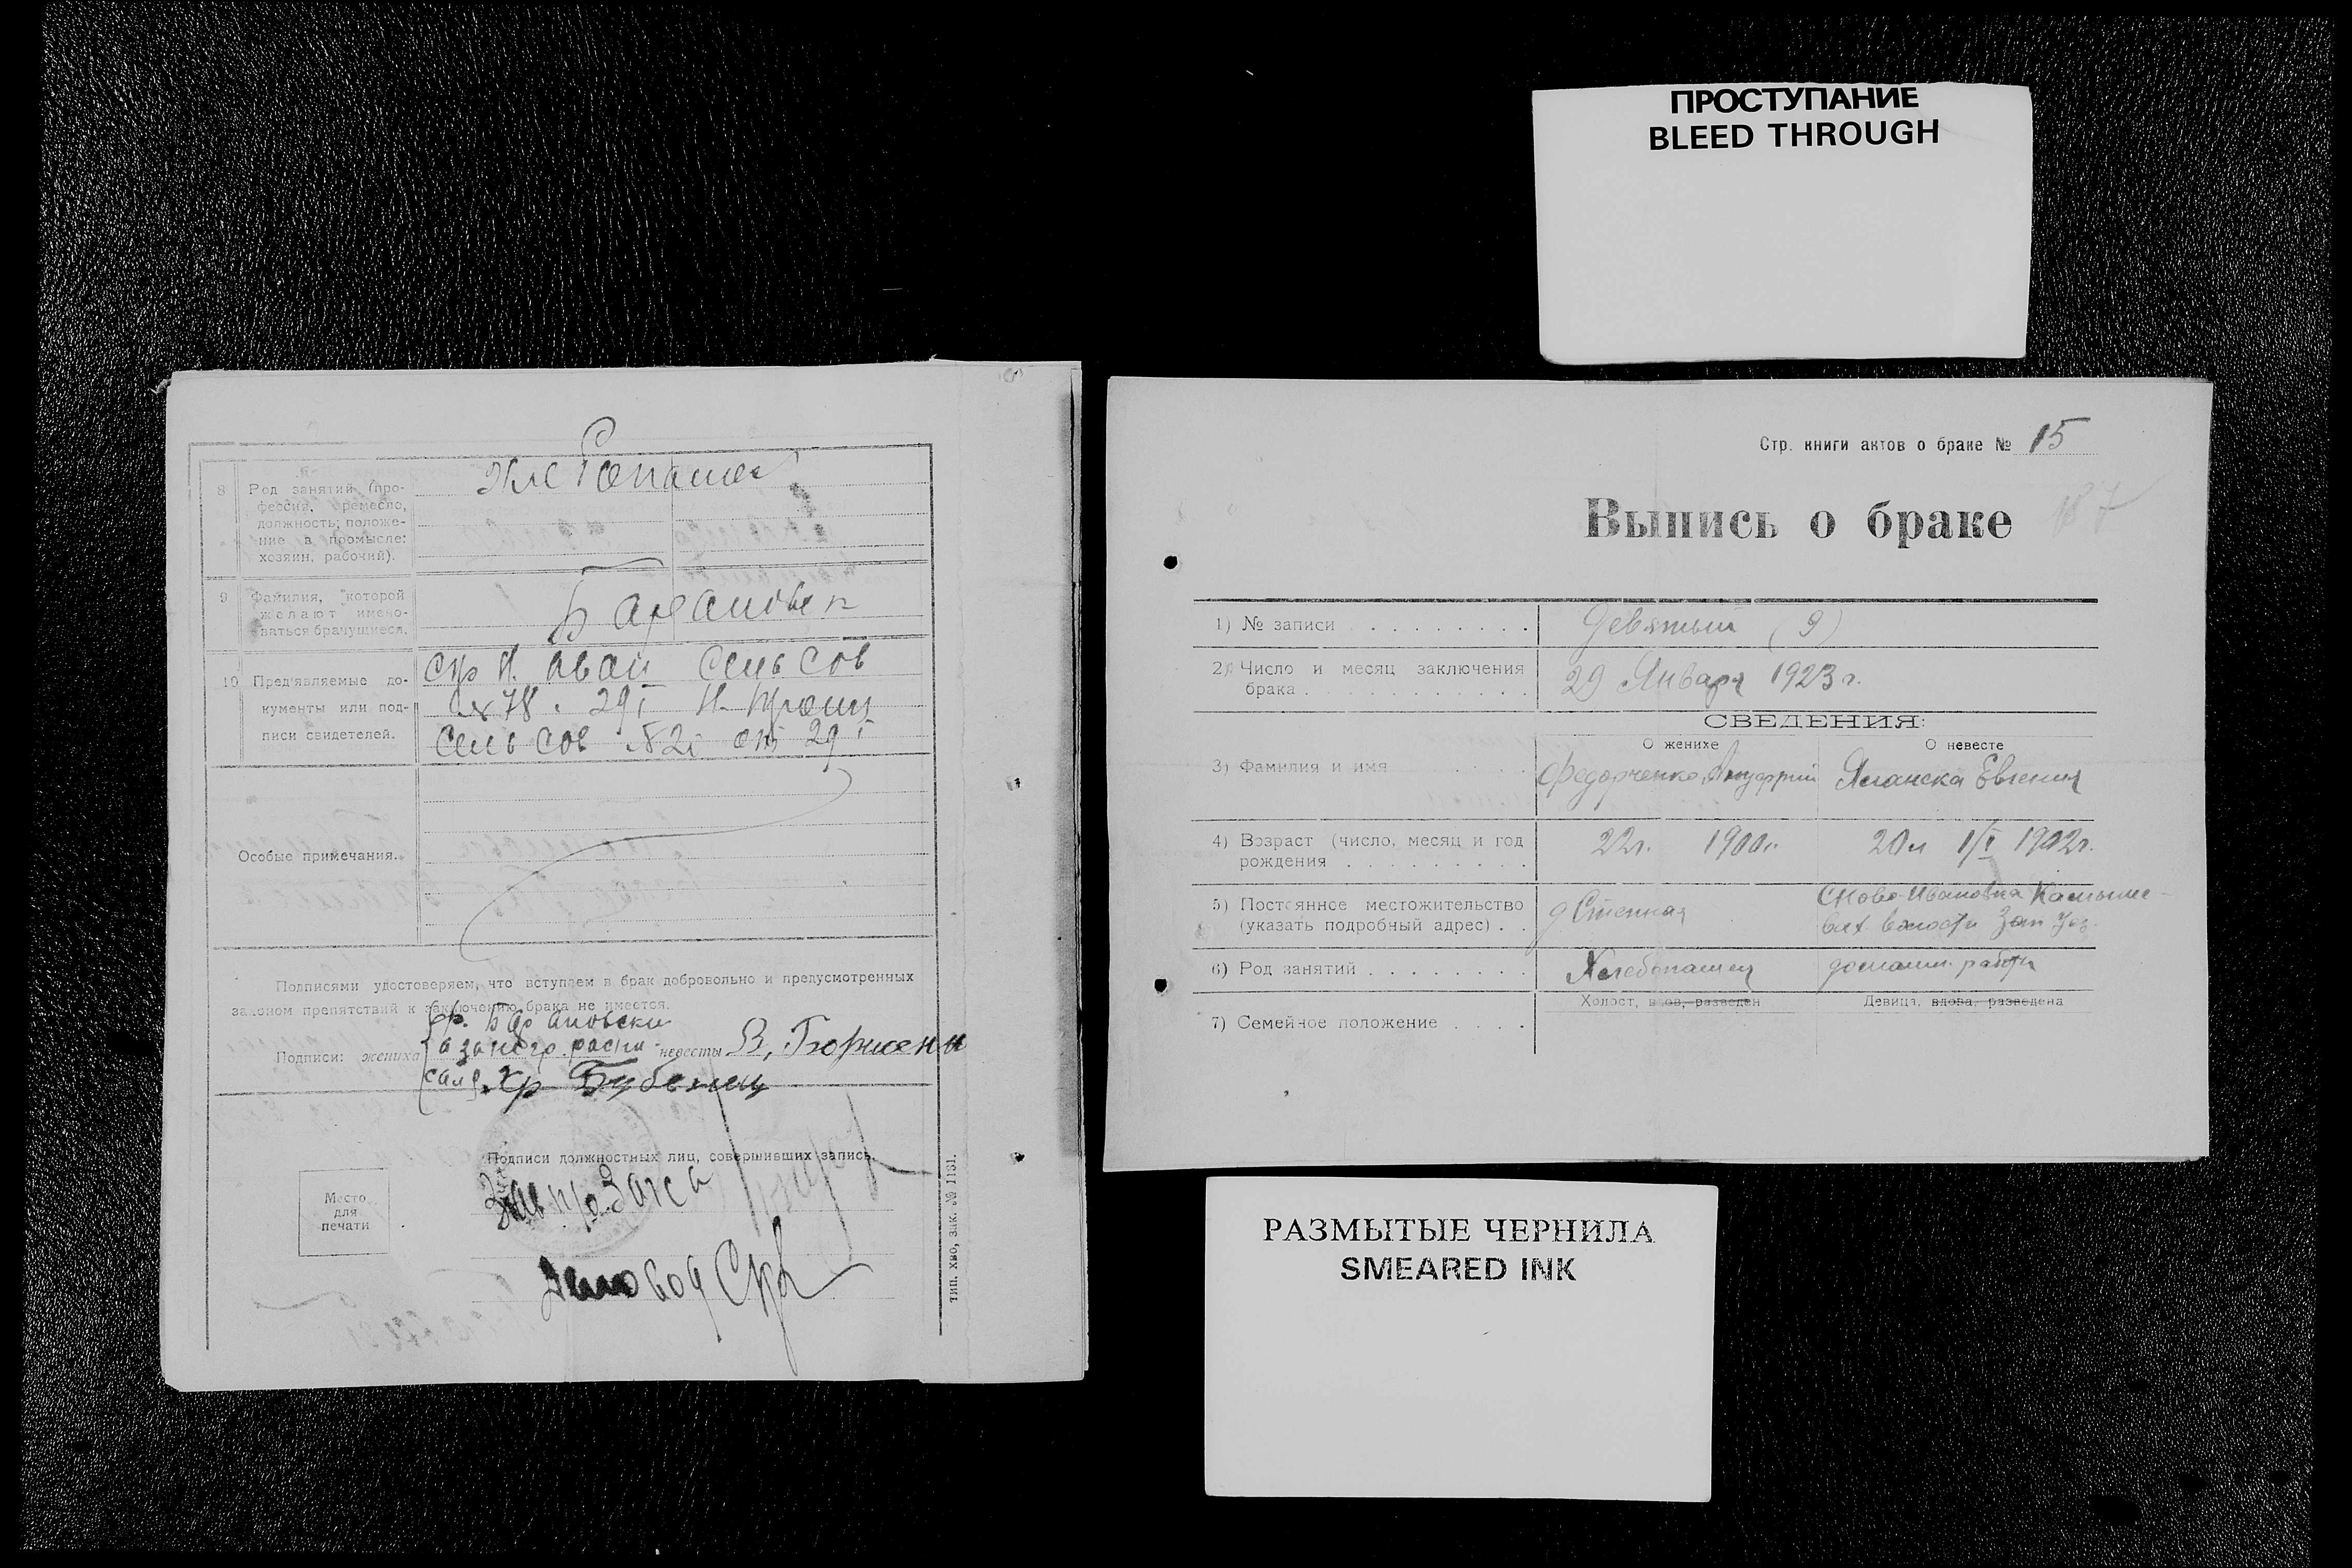 ПРОСТУПАНИЕ
BLEED THROUGH
8 Род занятий (про-
фессия, ремесло,
должность; положе-
ние в промысле:
хозяин, рабочий).
9 Фамилия, которой
желают имено-
ваться брачущиеся.
10 Пред'являемые до-
кументы или под-
писи свидетелей.
Сельсов
№ 78 29/I Н-
Сельсов № 2 от 29/I
Особые примечания.
Подписями удостоверяем, что вступаем в брак добровольно и предусмотренных
законом препятствий к заключению брака не имеется.
Подписи: жениха
гр. Барановски
а за него распи-
сался Хр Бубенец
невесты В,
Подписи должностных лиц, совершивших запись.
Место
для
печати
Деловод
тип. хво, зак. № 1131.
Стр. книги актов о браке № 15
187
Выпись о браке
1) № записи . . . . . . . . . Девятый (9)
2) Число и месяц заключения
брака . . . . . . . . . . . 29 Января 1923 г.
СВЕДЕНИЯ:
О женихе О невесте
3) Фамилия и имя . . . . Федорченко Евгения
4) Возраст (число, месяц и год
рождения . . . . . . . . . 22г. 1900г. 20л 1/I 1902г.
5) Постоянное местожительство
(указать подробный адрес) . . д Степная
С Ново-Ивановка Камыше-
вах. волости Зап Уез.
6) Род занятий . . . . . . . . Хлебопашец домашн. работа
Холост, вдов, разведен Девица, вдова, разведена
7) Семейное положение . . . .
РАЗМЫТЫЕ ЧЕРНИЛА
SMEARED INK